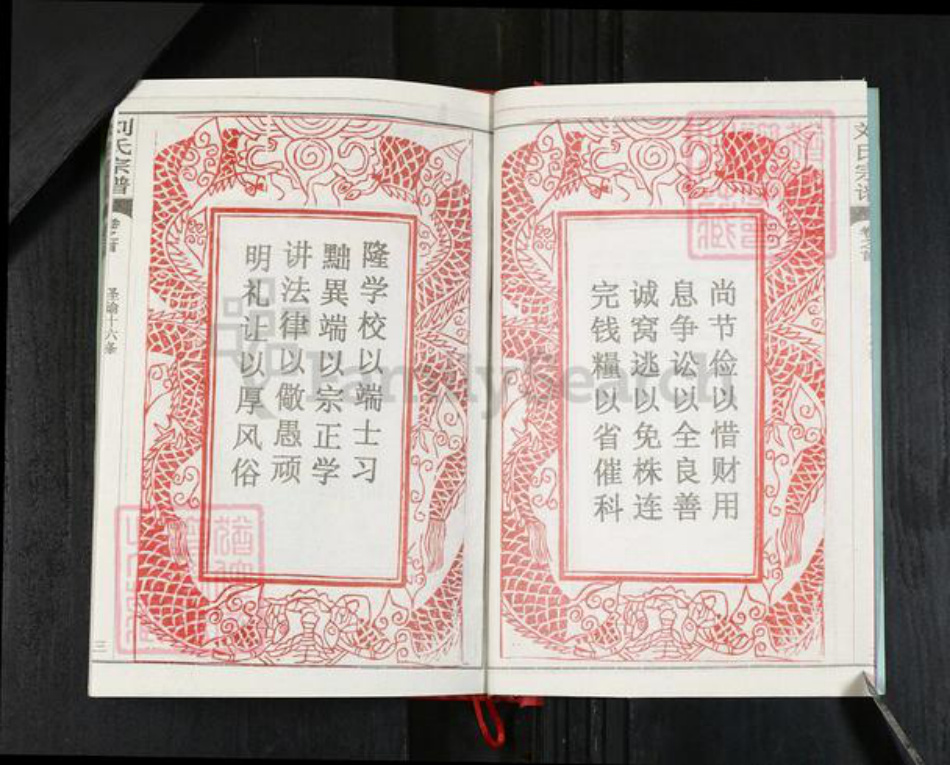 刘氏宗谱
尚节俭以惜财用
息争讼以全良善
诚窝逃以免株连
完钱糧以省催科
隆学校以端士习
黜異端以宗正学
讲法律以儆愚顽
明礼让以厚风俗
刘氏宗谱
卷之首
圣谕十六条
三
FamilySearch